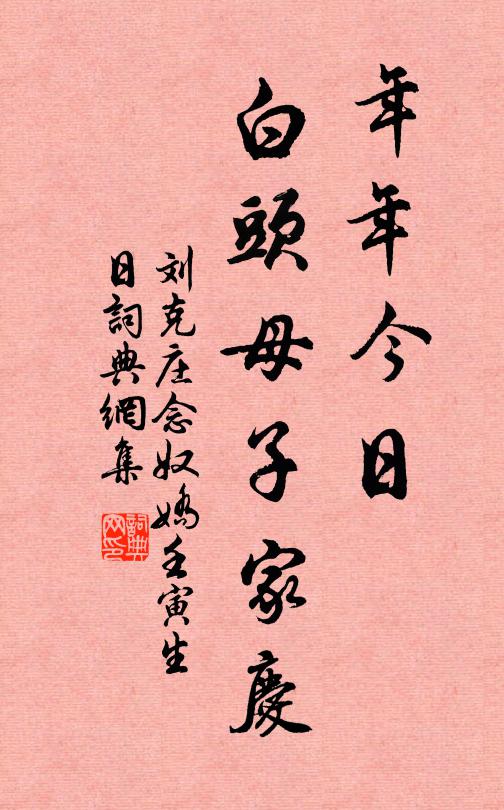 年年今日
白頭母子家慶
刘克庄念奴嬌壬寅生
日詞典網集
詞典
网印